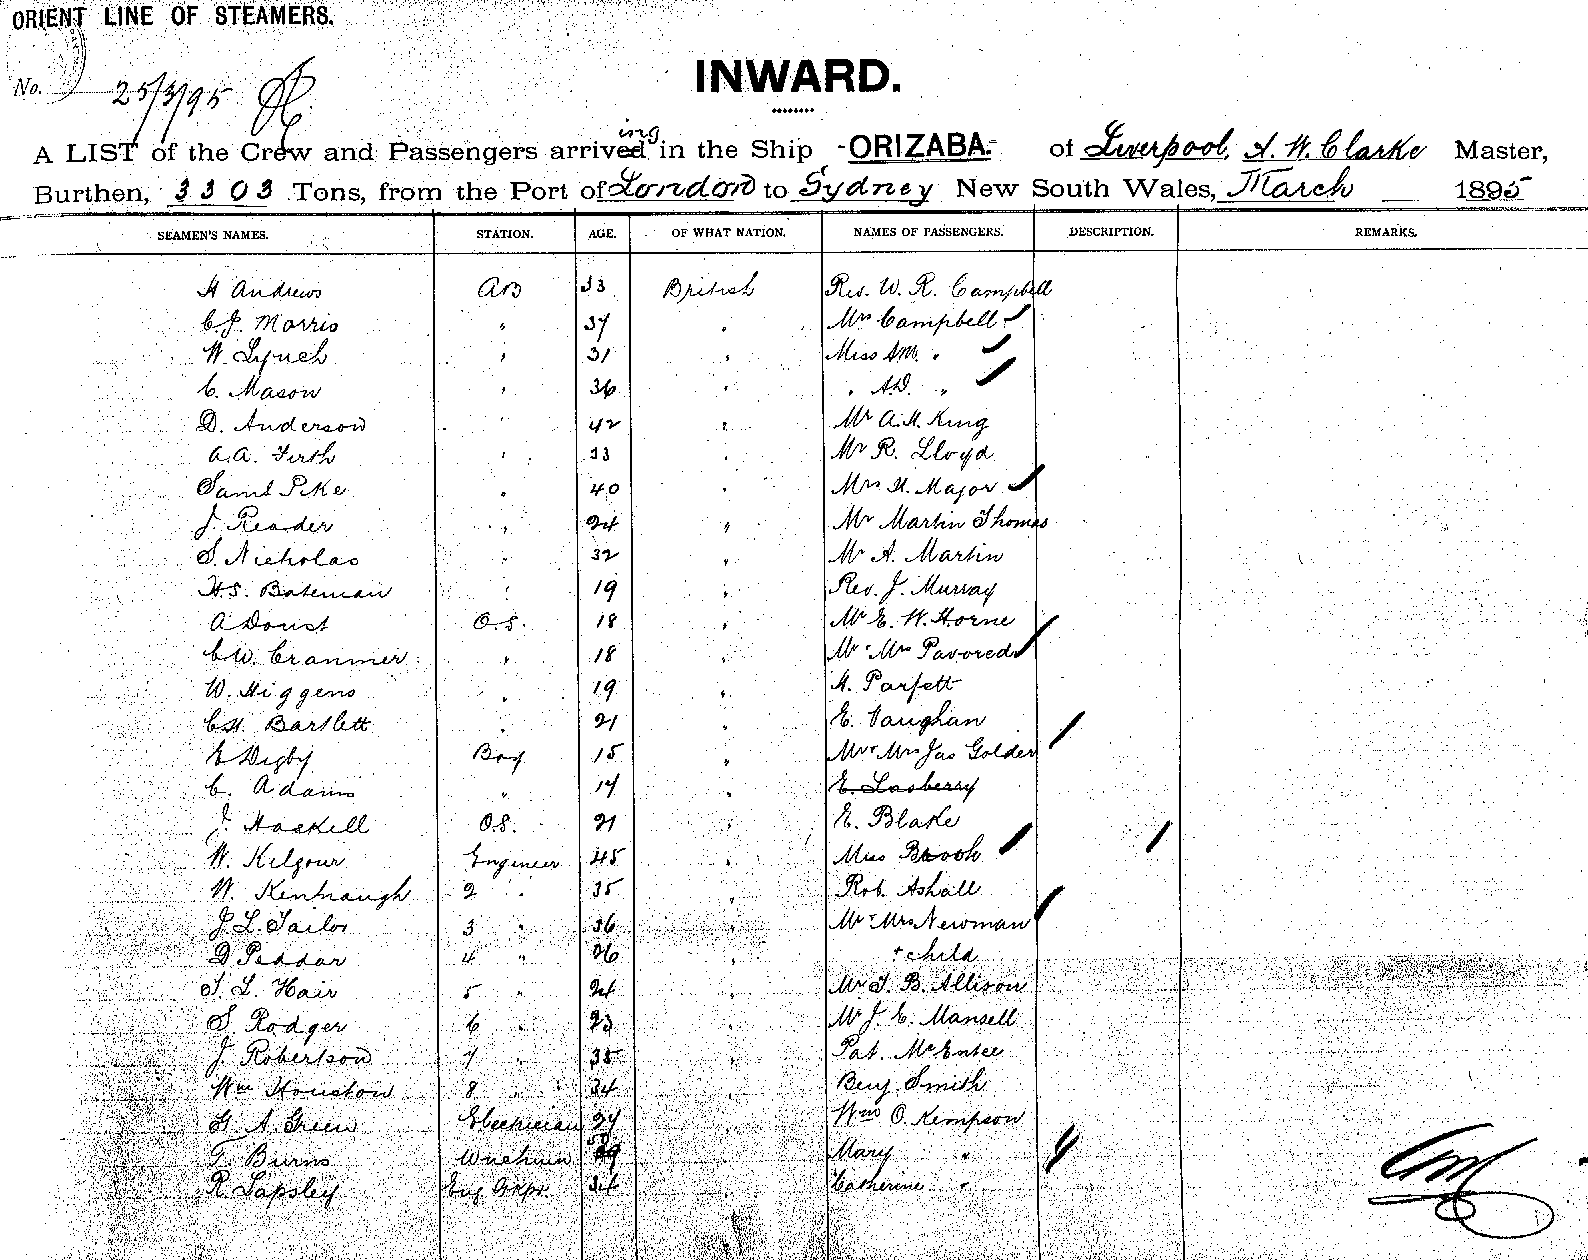 ORIENT LINE OF STEAMERS.
No. 25/3/95
INWARD.
ing
A LIST of the Crew and Passengers arrived in the Ship - ORIZABA. - of Liverpool, A. W. Clarke Master,
Burthen, 3303 Tons, from the Port of London to Sydney New South Wales, March 1895
SEAMEN'S NAMES. STATION. AGE. OF WHAT NATION. NAMES OF PASSENGERS. DESCRIPTION. REMARKS.
H Andrews AB 33 British Rev. W. R. Campbell
C. J. Morris " 37 " Mrs Campbell
W. Lynch " 31 " Miss "
C. Mason " 36 " " A.D. "
D. Anderson " 42 " Mr A. H. King
A. A. Firth " 33 " Mr R. Lloyd
Saml Pike " 40 " Mrs H. Major
J. Reader " 24 " Mr Martin Thomas
S. Nicholas " 32 " Mr A. Martin
H. S. Bateman " 19 " Rev. J. Murray
A Doust O.S. 18 " Mr E. W. Horne
C. W. Cranmer " 18 " Mr + Mrs
W. Higgens " 19 " A. Parfett
C. H. Bartlett " 21 " E. Vaughan
E Digby Boy 15 " Mr + Mrs Jas Golder
C. Adams " 17 " E. Lasberry
J. Haskell O.S. 21 " E. Blake
W. Kilgour Engineer 45 " Miss Brook
W. Kenhaugh 2 " 35 " Rob. Ashall
J. L. Tailor 3 " 36 " Mr + Mrs Newman
D. Peddar 4 " 26 " + child
S. L. Hair 5 " 24 " Mr T. B. Allison
S. Rodger 6 " 23 " Mr J. E. Mansell
J. Robertson 7 " 35 " Pat. McEntee
Wm Houston 8 " 34 " Benj Smith
A. Green Electrician 27 " Wm O. Kempson
T. Burns " Mary "
R. Lapsley 34 " Catherine "